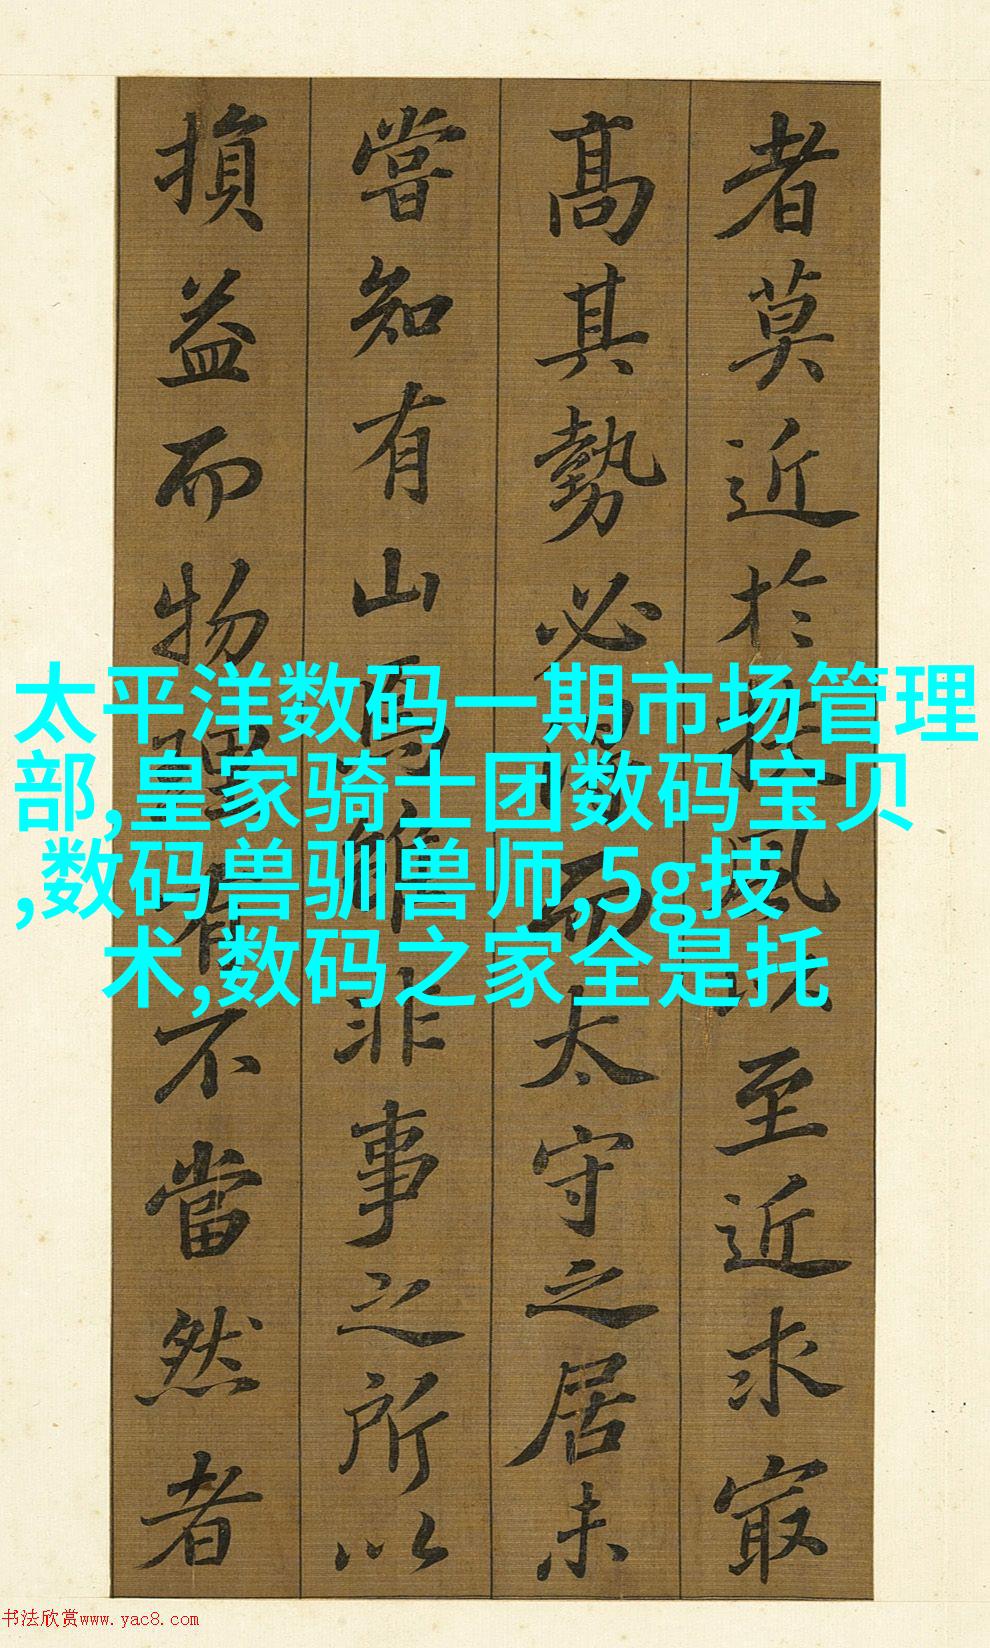 者莫近於扶風以至近求㝡
髙其勢必得而太守之居未
嘗知有山焉雖非事之所以
損益而物理有不當然者
太平洋数码一期市场管理
部,皇家骑士团数码宝贝
,数码兽驯兽师,5g技
术,数码之家全是托
书法欣赏www.yac8.com